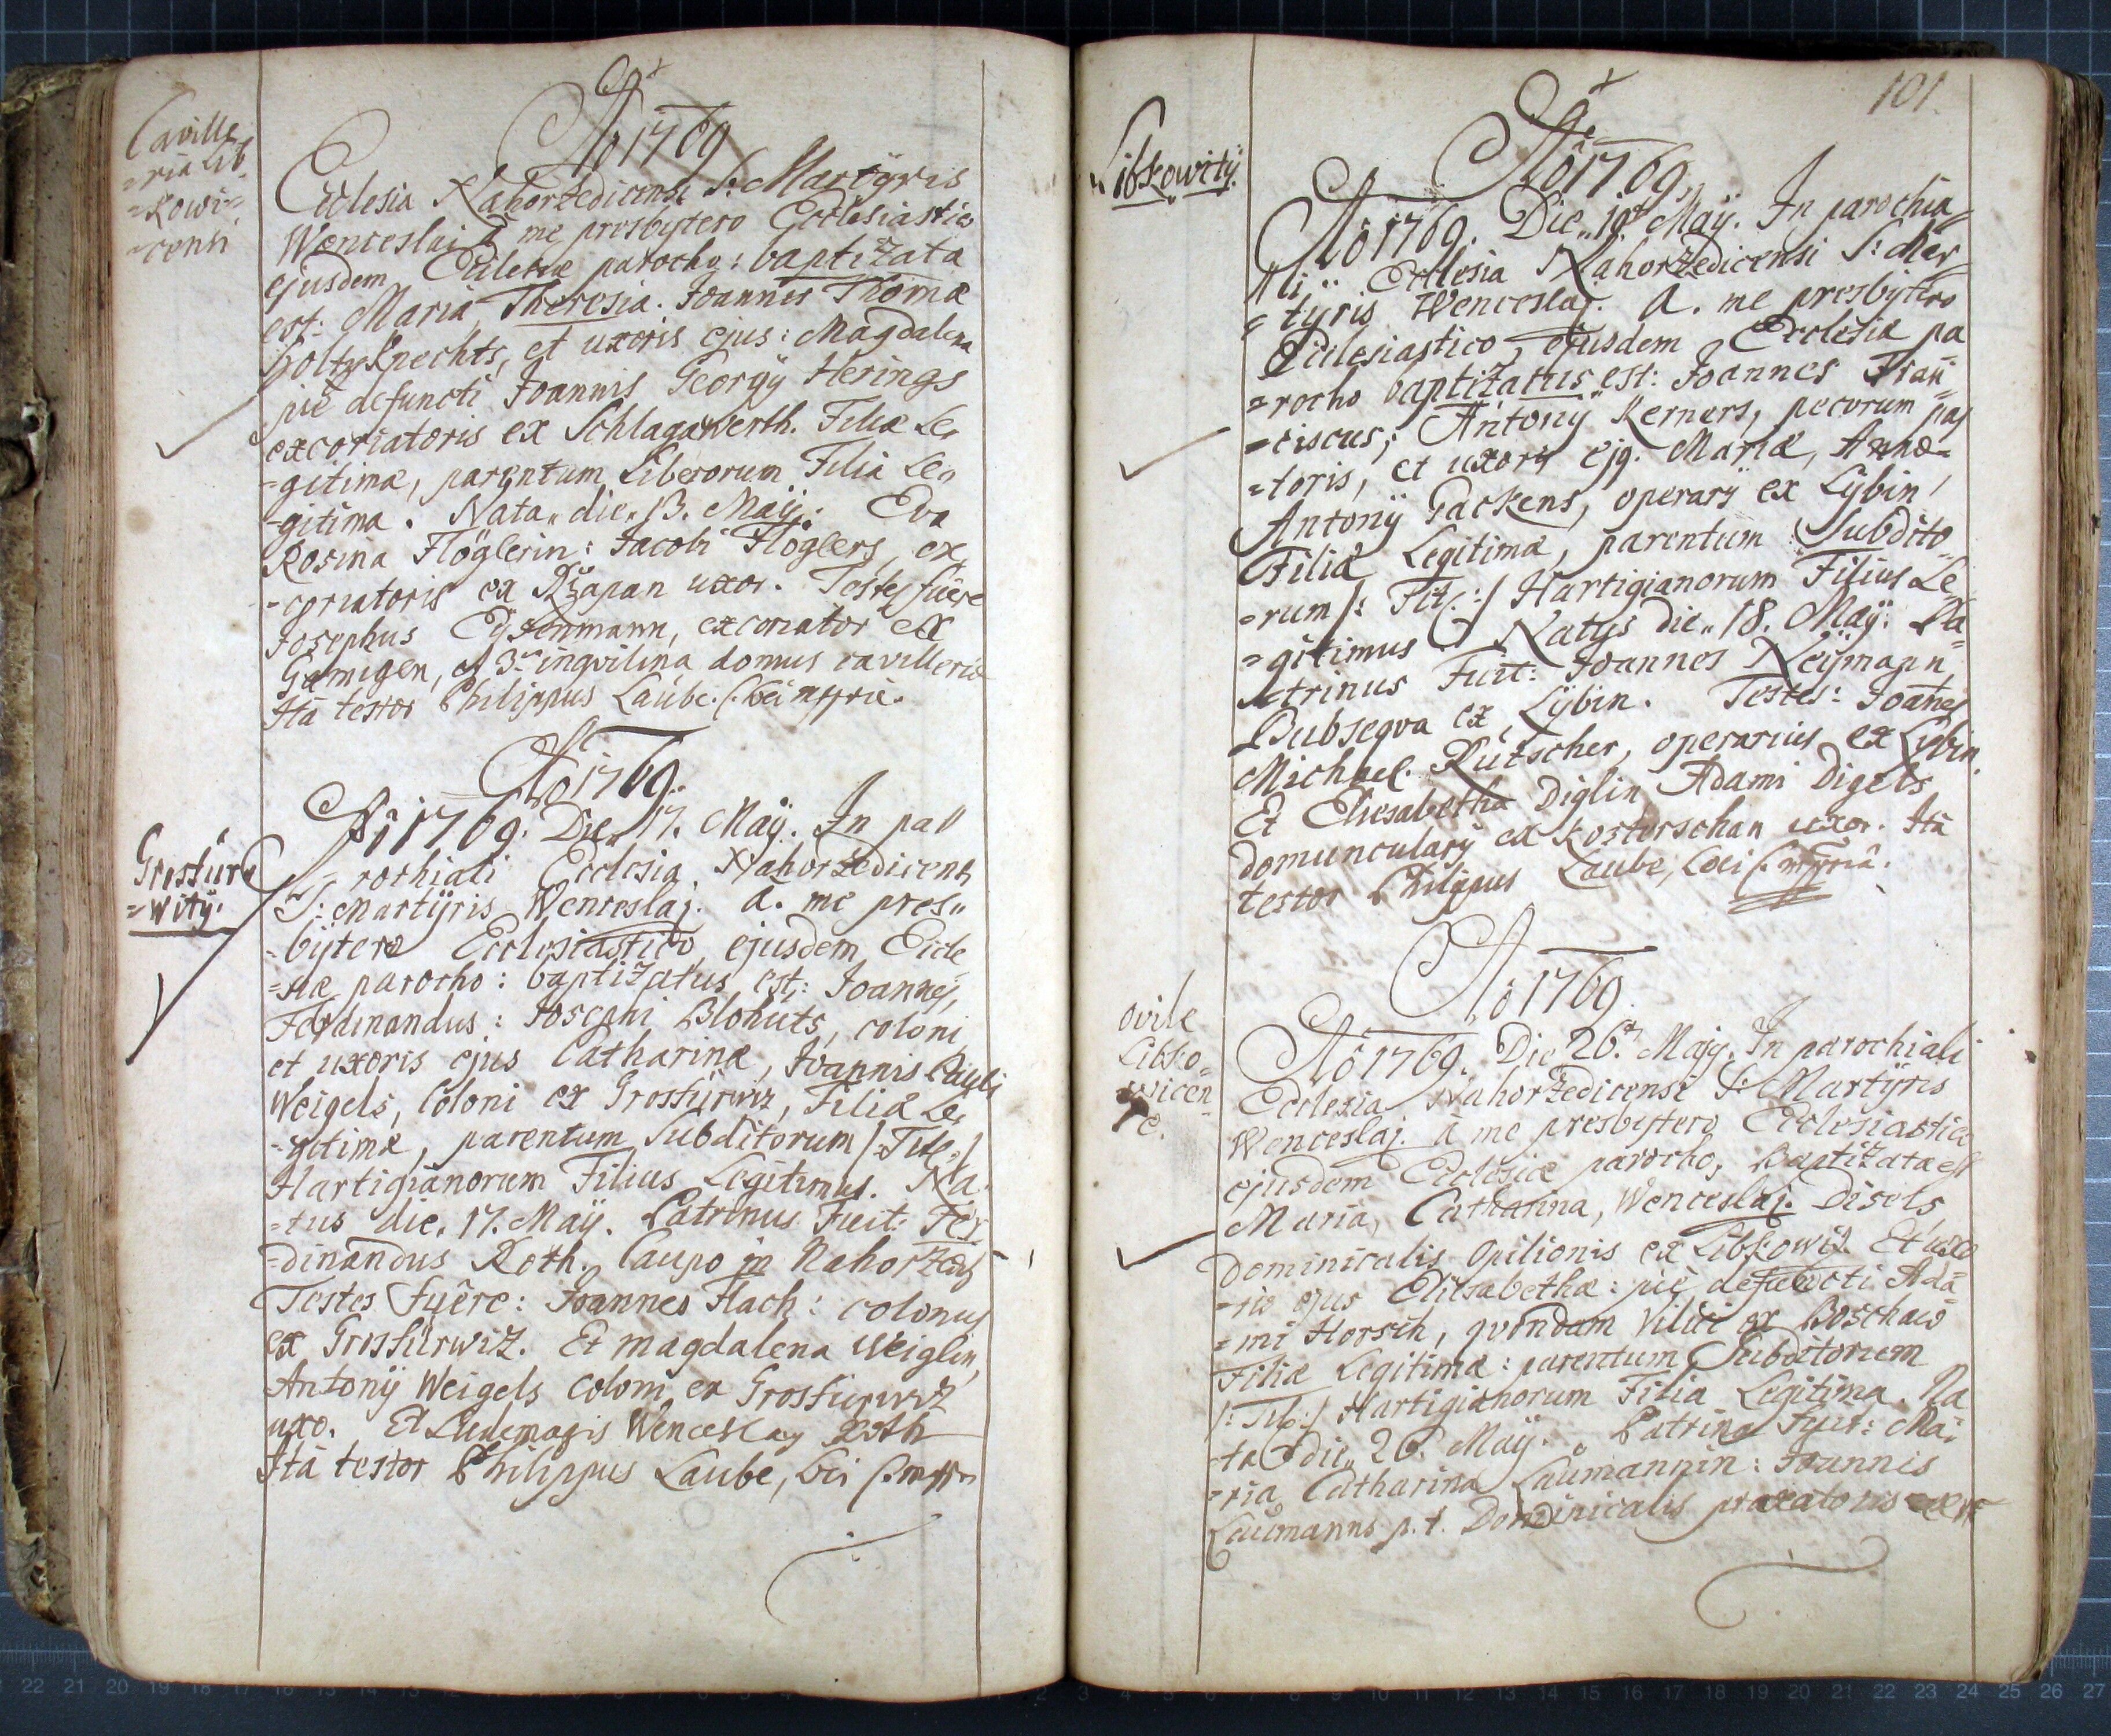 Caville
=ria Lib
=Kowi=
=censi
Aõ 1769
Ecclesia Nahoržedicensi S: Martÿris
Wenceslai à me presbytero Ecclesiastico
ejusdem Ecclesiæ parocho: baptizata
est: Maria Theresia. Joannis Thomæ
Holtzknechts, et uxoris ejus: Magdalena
piè defuncti Joannis Georgÿ Herings
excoriatoris ex Schlagawerth. Filiæ Le,
=gitimæ, parentum Liberorum Filia Le,
=gitima. Nata,, die,, 13. Maÿ: Eva
Rosina Flöglerin: Jacobi Flöglers, ex,
=coriatoris ex uxor. Testes fuêre
Josephus Eÿsenmann, excoriator ex
Gamigen, et 3. inqvilina domus cavilleriæ
Ità testor Philippus Laube.
Aõ 1769.
Grosfürr
=witz.
Aõ 1769. Die,, 17. Maÿ. In pa//
=rochiali Ecclesia Nahoržedicens
S: Martÿris Wenceslaj. a. me pres,,
=bÿtero Ecclesiastico, ejusdem Eccle
=siæ parocho: baptizatus est: Joannes,
Ferdinandus: Josephi Blohuts, coloni
et uxoris ejus Catharinæ, Joannis Pauli
Weigels, Coloni ex Grosfürwiz, Filiæ Le,
=gitimæ, parentum Subditorum /:Titl:/
Hartigianorum Filius Legitimus. Na
=tus die. 17. Maÿ. Patrinus Fuit: Fer
=dinandus Roth. Caupo in Nahoržedl
Testes Fuêre: Joannes Flach: colonus
ex Grosfürwiz. Et Magdalena Weiglin,
Antonÿ Weigels Coloni ex Grosfürwiz
uxo. Et Ludemagis Wenceslaus Roth
Ità testor Philippus Laube,
101.
Aõ 1769.
Libkowitz.
Aõ 1769. Die,, 19. Maÿ. In parochia=
ali,, Ecclesia Nahoržedicensi S: Mar
=tyris Wenceslaj. a. me presbÿtero
Ecclesiastico, ejusdem Ecclesiæ pa
=rocho baptizatus est: Joannes Fran
=ciscus; Antonÿ Kerners, pecorum pas
=toris, et uxoris ejq. Mariæ, Annæ=
Antonÿ Packens, operarÿ ex Lÿbin,
Filiæ Legitimæ, parentum Subdito=
=rum /: Tit:/ Hartigianorum Filius Le=
=gitimus Natus die,, 18. Maÿ. Pa=
=trinus Fuit: Joannes Neÿmann
Bubseqva ex Lÿbin. Testes: Joanes
Michael Kutscher, operarius ex Lybin.
Et Eliesabetha Diglin, Adami Digels
domuncularÿ ex Kosterschan uxor. Ità
testor Philippus Laube,
Aõ 1769.
ovile
Libko=
=wicen=
e.
Aõ 1769. Die 26. Maÿ. In parochiali
Ecclesia Nahoržedicensi S: Martÿris
Wenceslaj. a me presbytero Ecclesiastico
ejusdem Ecclesiæ parocho, Baptizata est
Maria, Catharina, Wenceslaj. Disels
Dominicalis Opilionis ex Libkowiz. Et uxo
=ris ejus Elitsabethæ: piè defuncti Ada
=mi Horsch, qvondam Vilici ex Boschaw
Filiæ Legitimæ: parentum Subditorum
/:Tit:/ Hartigianorum Filia Legitima. Na
=ta die,, 26. Maÿ. Patrina Fuit: Ma=
=ria Catharina Laumannin: Joannis
Laumanns p. t. Dominicalis